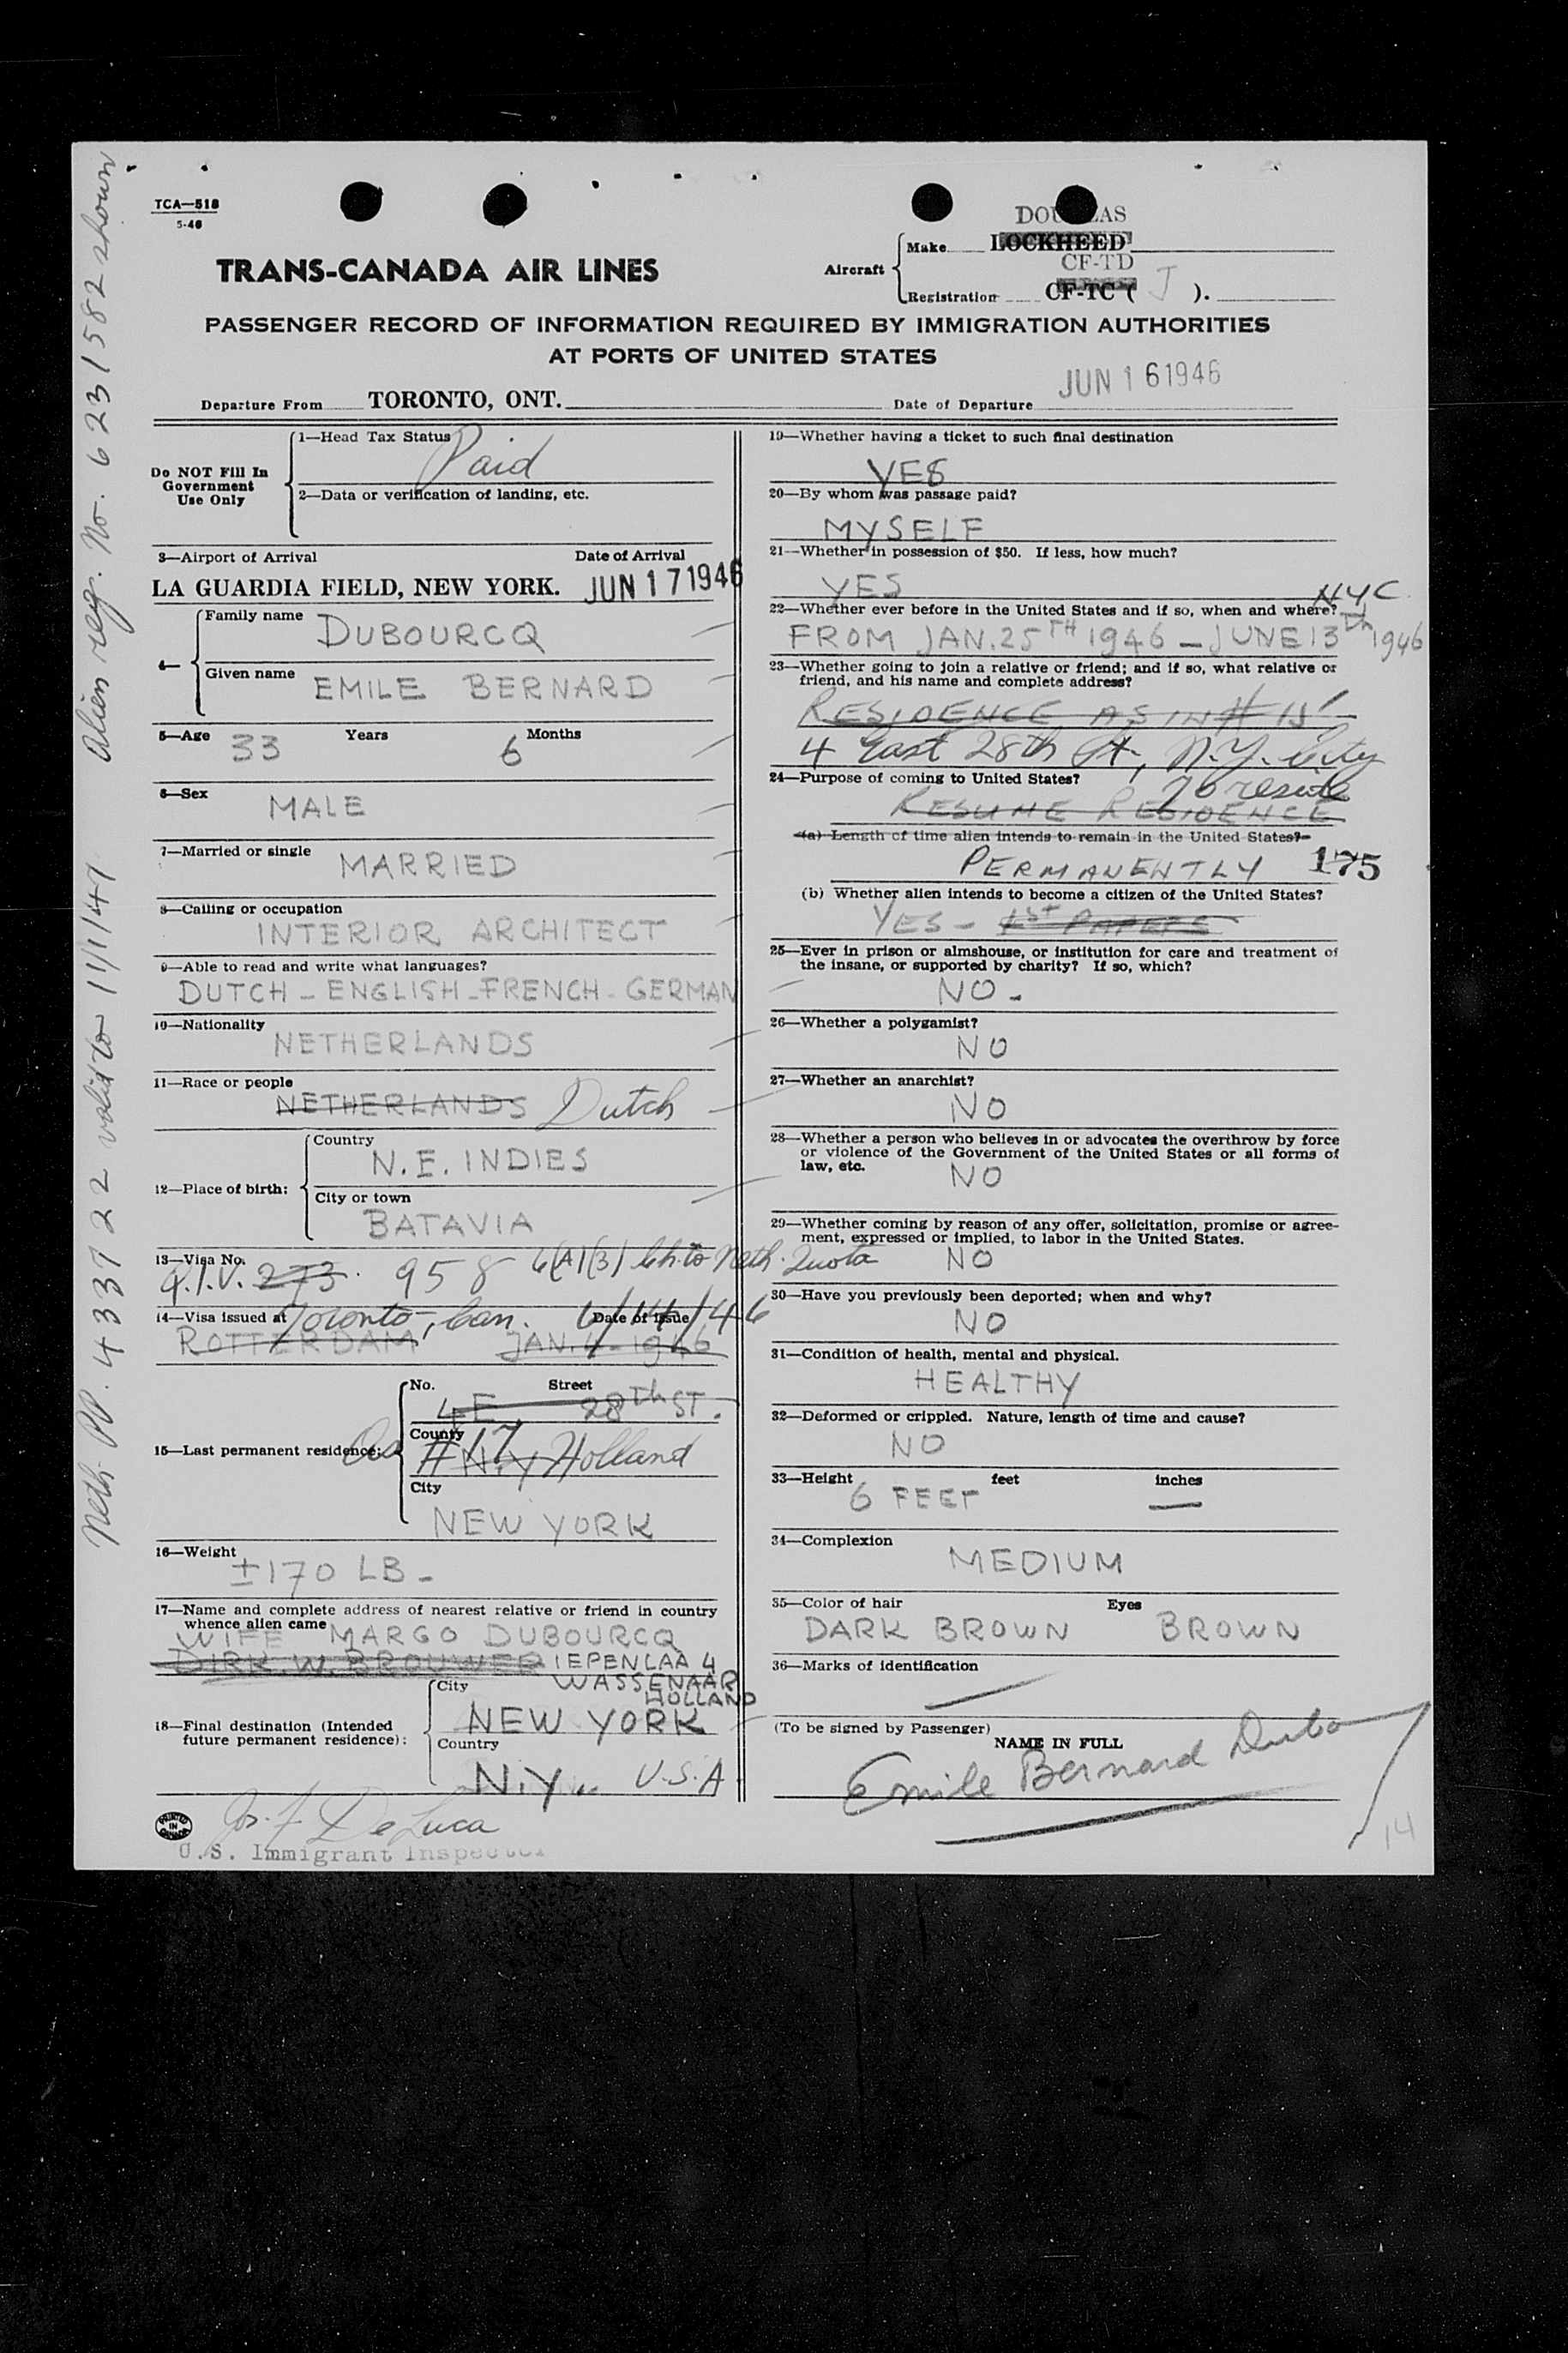 TCA—518
5-46
DOUGLAS
Make LOCKHEED
CF-TD
Aircraft
Registration CF-TC ( J ).
TRANS-CANADA AIR LINES
PASSENGER RECORD OF INFORMATION REQUIRED BY IMMIGRATION AUTHORITIES
AT PORTS OF UNITED STATES
Departure From TORONTO, ONT. Date of Departure JUN 16 1946
Do NOT Fill In
Government
Use Only
1—Head Tax Status Paid
2—Data or verification of landing, etc.
3—Airport of Arrival Date of Arrival
LA GUARDIA FIELD, NEW YORK. JUN 17 1946
4—
Family name DUBOURCQ
Given name EMILE BERNARD
5—Age 33 Years 6 Months
6—Sex
MALE
7—Married or single MARRIED
8—Calling or occupation
INTERIOR ARCHITECT
9—Able to read and write what languages?
DUTCH - ENGLISH - FRENCH - GERMAN
10—Nationality
NETHERLANDS
11—Race or people
NETHERLANDS Dutch
12—Place of birth:
Country
N.E. INDIES
City or town
BATAVIA
13—Visa No.
Q.I.V. 273. 958 6(A)(3) Ch. to Neth. Quota
14—Visa issued at Toronto, Can. Date of issue 6/14/46
ROTTERDAM JAN. 4 - 1946
15—Last permanent residence:
No. Street
4 E 28Th ST.
County
As #17 N.Y Holland
City
NEW YORK
16—Weight
±170 LB -
17—Name and complete address of nearest relative or friend in country
whence alien came
WIFE MARGO DUBOURCQ
DIRK. W. BROUWER IEPENLAA 4
WASSENAAR
HOLLAND
18—Final destination (Intended
future permanent residence):
City
NEW YORK
Country
N.Y. U.S.A
PRINTED IN CANADA
Jos. F. DeLuca
U.S. Immigrant Inspector
19—Whether having a ticket to such final destination
YES
20—By whom was passage paid?
MYSELF
21—Whether in possession of $50. If less, how much?
YES
22—Whether ever before in the United States and if so, when and where? NYC
FROM JAN. 25TH 1946 — JUNE 13th 1946
23—Whether going to join a relative or friend; and if so, what relative or
friend, and his name and complete address?
RESIDENCE AS IN # 15
4 East 28th St, N.Y. City
24—Purpose of coming to United States? To reside
RESUME RESIDENCE
(a) Length of time alien intends to remain in the United States?
PERMANENTLY 175
(b) Whether alien intends to become a citizen of the United States?
YES - 1st PAPERS
25—Ever in prison or almshouse, or institution for care and treatment of
the insane, or supported by charity? If so, which?
NO -
26—Whether a polygamist?
NO
27—Whether an anarchist?
NO
28—Whether a person who believes in or advocates the overthrow by force
or violence of the Government of the United States or all forms of
law, etc.
NO
29—Whether coming by reason of any offer, solicitation, promise or agree-
ment, expressed or implied, to labor in the United States.
NO
30—Have you previously been deported; when and why?
NO
31—Condition of health, mental and physical.
HEALTHY
32—Deformed or crippled. Nature, length of time and cause?
NO
33—Height feet inches
6 FEET —
34—Complexion
MEDIUM
35—Color of hair Eyes
DARK BROWN BROWN
36—Marks of identification
(To be signed by Passenger)
NAME IN FULL
Emile Bernard Dubo
14
Neth PP. 433722 valid to 11/1/47 Alien reg. No. 6231582 shown